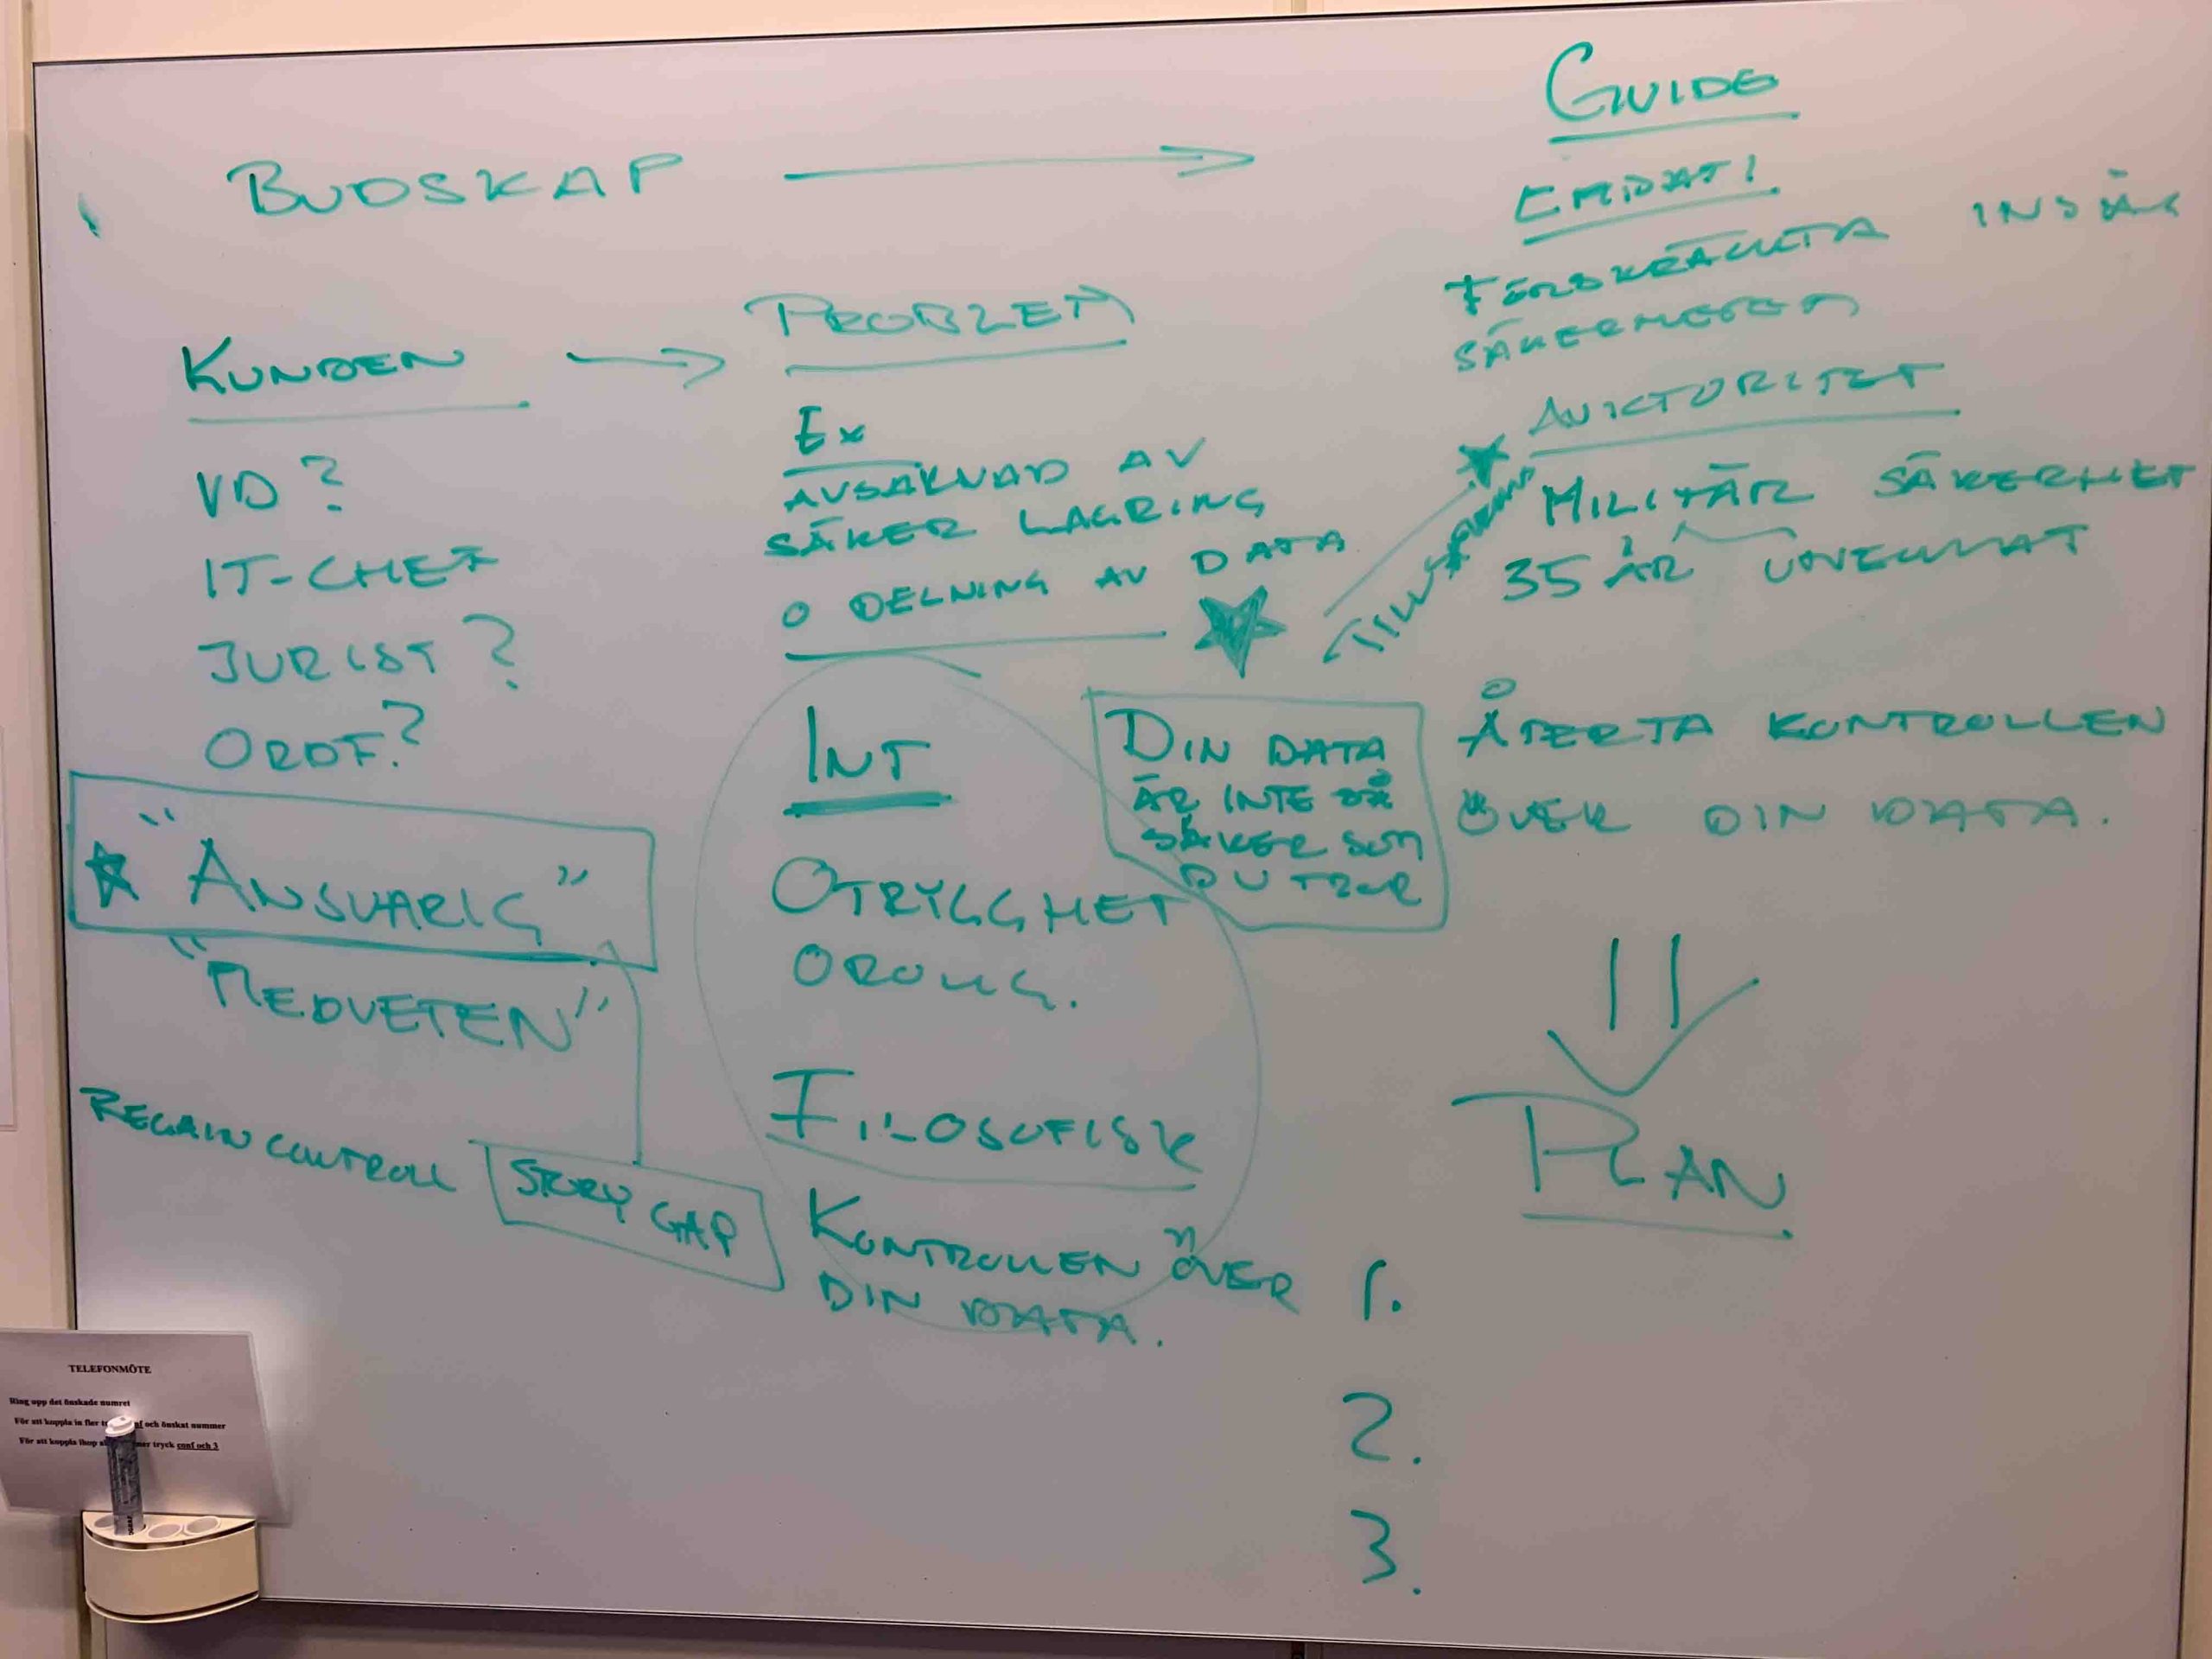 BUDSKAP
KUNDEN
VD?
IT-CHEF
JURIST?
ORDF.?
"ANSVARIG"
"MEDVETEN"
REGAIN CONTROLL
STORY GAP
PROBLEM
EX
AVSAKNAD AV
SÄKER LAGRING
O DELNING AV DATA
INT
OTRYGGHET
OROLIG.
FILOSOFISK
KONTROLLEN ÖVER
DIN DATA.
DIN DATA
ÄR INTE SÅ
SÄKER SOM
DU TROR
GUIDE
EMPATI
SÄKERHETEN
AUKTORITET
MILITÄR SÄKERHET
35 ÅR UTVECKLAT
ÅTERTA KONTROLLEN
ÖVER DIN DATA.
PLAN
1.
2.
3.
TELEFONMÖTE
Ring upp det önskade numret
För att koppla in fler och önskat nummer
För att koppla ihop tryck conf och 3